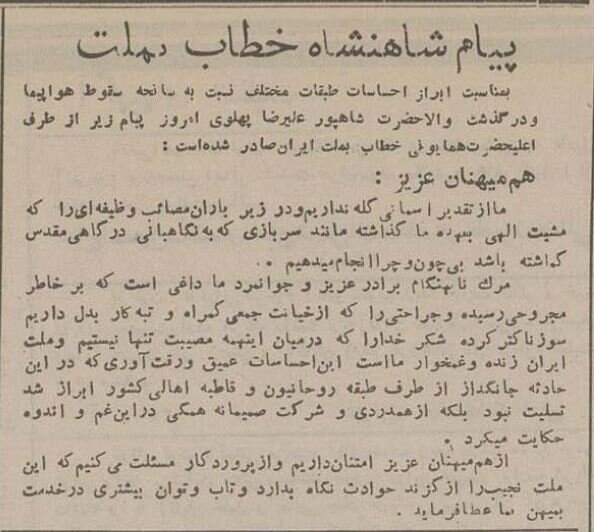 پیام شاهنشاه خطاب بملت
بمناسبت ابراز احساسات طبقات مختلف نسبت به سانحه سقوط هواپیما
و درگذشت والاحضرت شاهپور علیرضا پهلوی امروز پیام زیر از طرف
اعلیحضرت همایونی خطاب بملت ایران صادر شده‌است :
هم‌میهنان عزیز :
ما از تقدیر آسمانی گله نداریم و در زیر باران مصائب وظیفه‌ای را که
مشیت الهی بعهده ما گذاشته مانند سربازی که به نگاهبانی درگاهی مقدس
گماشته باشد بی‌چون و چرا انجام میدهیم .
مرگ نابهنگام برادر عزیز و جوانمرد ما داغی است که بر خاطر
مجروحی رسیده و جراحتی را که از خیانت جمعی گمراه و تبه کار بدل داریم
سوزناکتر کرده شکر خدا را که درمیان اینهمه مصیبت تنها نیستیم و ملت
ایران زنده و غمخوار ما است این احساسات عمیق و رقت آوری که در این
حادثه جانگداز از طرف طبقه روحانیون و قاطبه اهالی کشور ابراز شد
تسلیت نبود بلکه از همدردی و شرکت صمیمانه همگی در این غم و اندوه
حکایت میکرد .
از هم‌میهنان عزیز امتنان داریم و از پروردگار مسئلت می‌کنیم که این
ملت نجیب را از گزند حوادث نگاه بدارد و تاب و توان بیشتری در خدمت
بمیهن بما عطا فرماید .